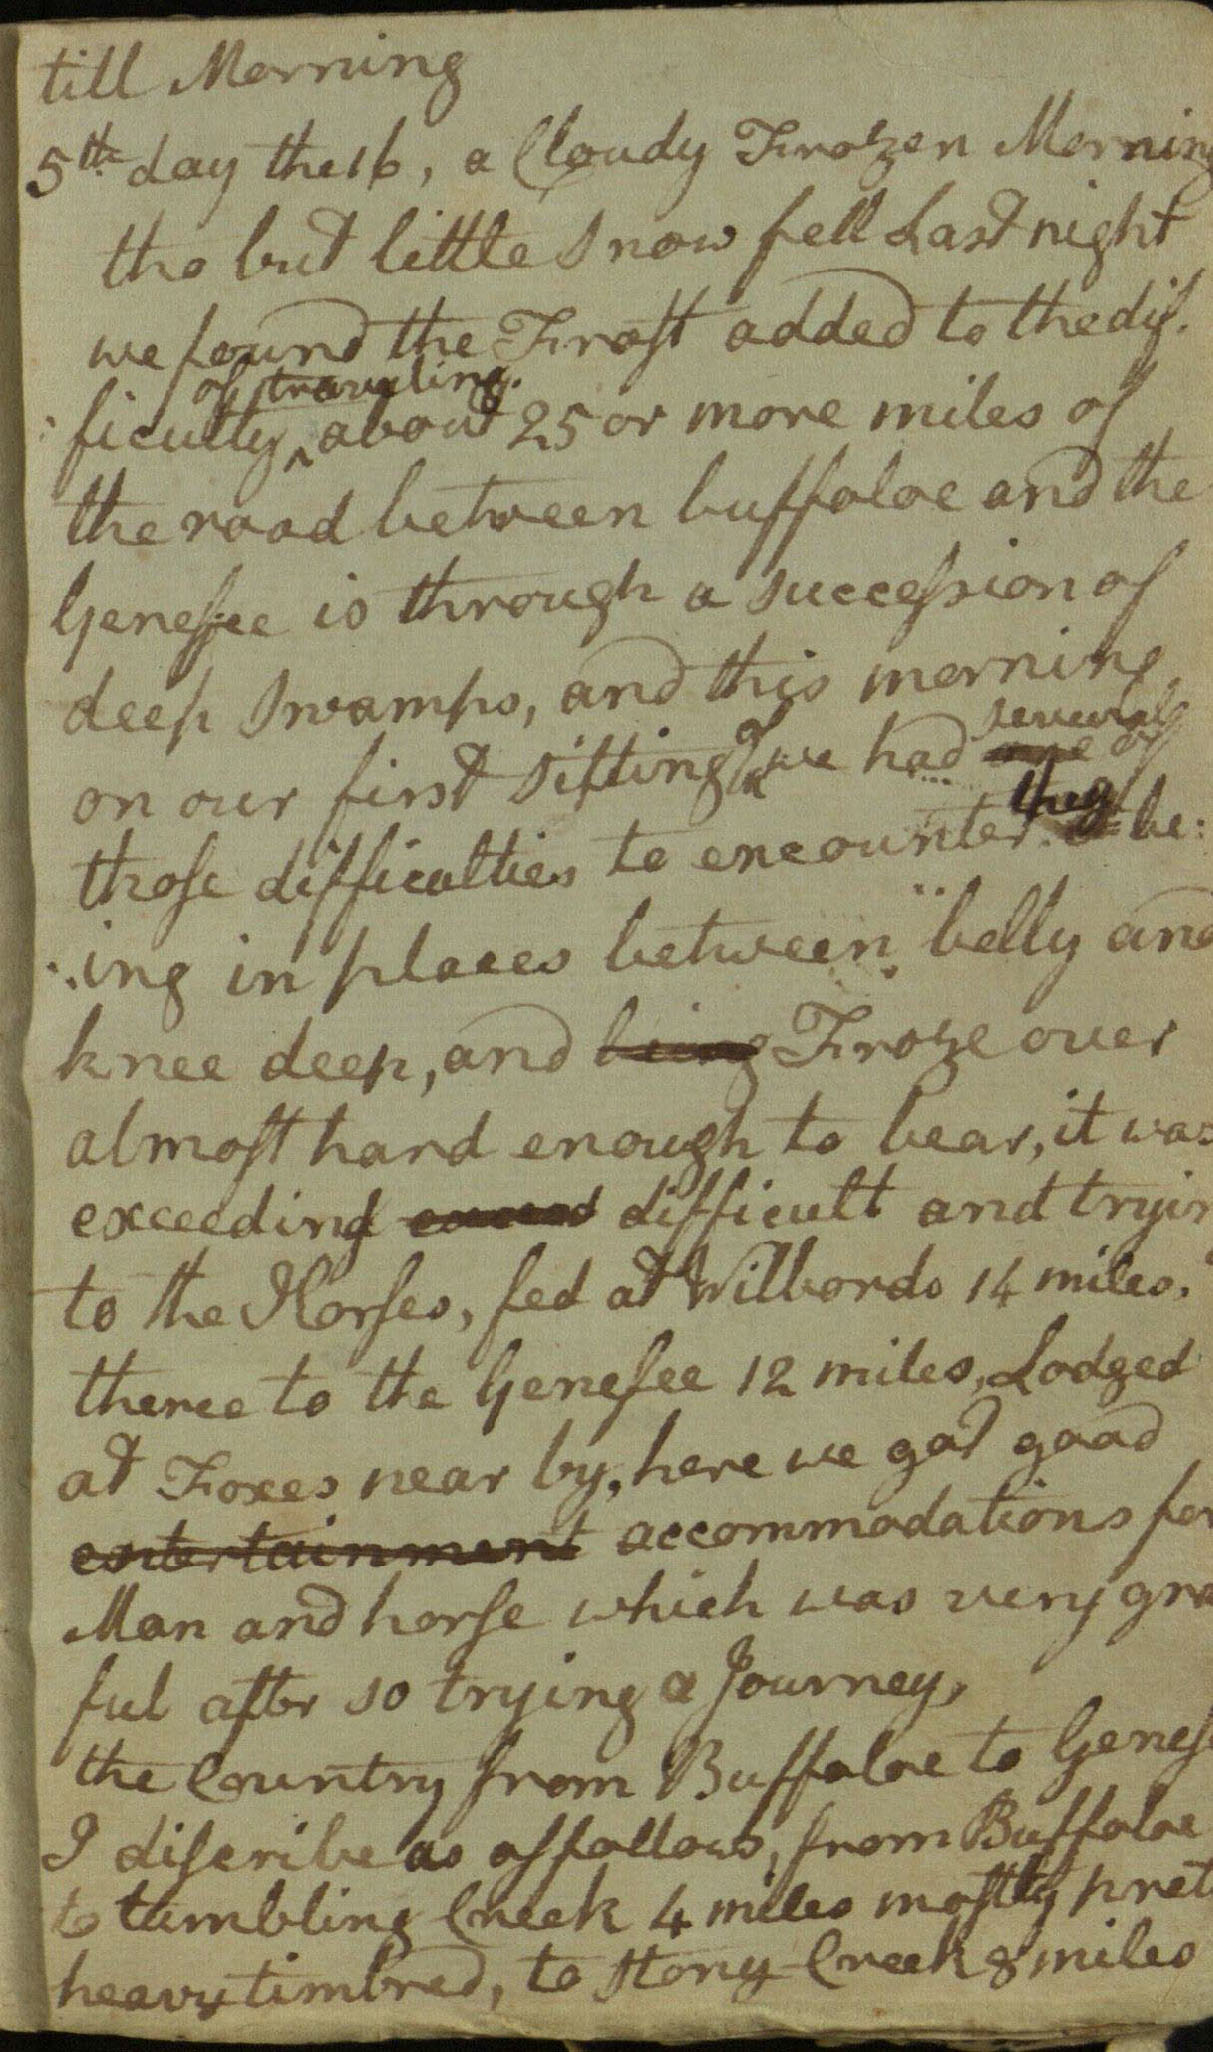 till Morning
5th day the 16, a Cloudy Frozen Morning
tho but little Snow fell Last night
we found the Frost added to the dif.
of traveling.
: ficulty ^ about 25 or more miles of
the road between buffaloe and the
Genesee is through a succession of
deep Swamps, and this morning
on our first sitting of we had several of
those difficulties to encounter they be:
:ing in places between belly and
knee deep, and being Froze over
almost hard enough to bear, it was
exceeding difficult and tryin
to the Horses, fed at Wilbords 14 miles.
thence to the Genesee 12 miles, Lodged
at Foxes near by, here we got good
entertainment accommodations for
Man and horse which was very gra
ful after so trying a Journey,
the Country from Buffaloe to Genes
I discribe as asfollows, from Buffaloe
to tumbling Creek 4 miles mostly pret
heavy timbred, to Stony Creek 8 miles